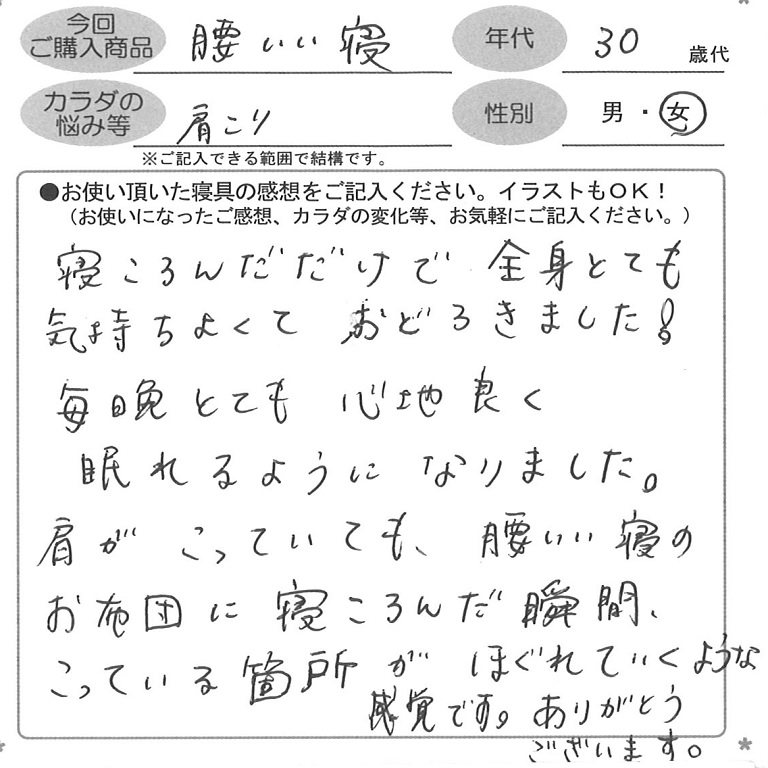 今回
ご購入商品 腰いい寝 年代 30 歳代
カラダの
悩み等 肩こり 性別 男・女
※ご記入できる範囲で結構です。
●お使い頂いた寝具の感想をご記入ください。イラストもOK!
(お使いになったご感想、カラダの変化等、お気軽にご記入ください。)
寝ころんだだけで 全身とても
気持ちよくて おどろきました!
毎晩とても 心地良く
眠れるように なりました。
肩が こっていても、腰いい寝の
お布団に 寝ころんだ瞬間、
こっている箇所が ほぐれていくような
感覚です。ありがとう
ございます。